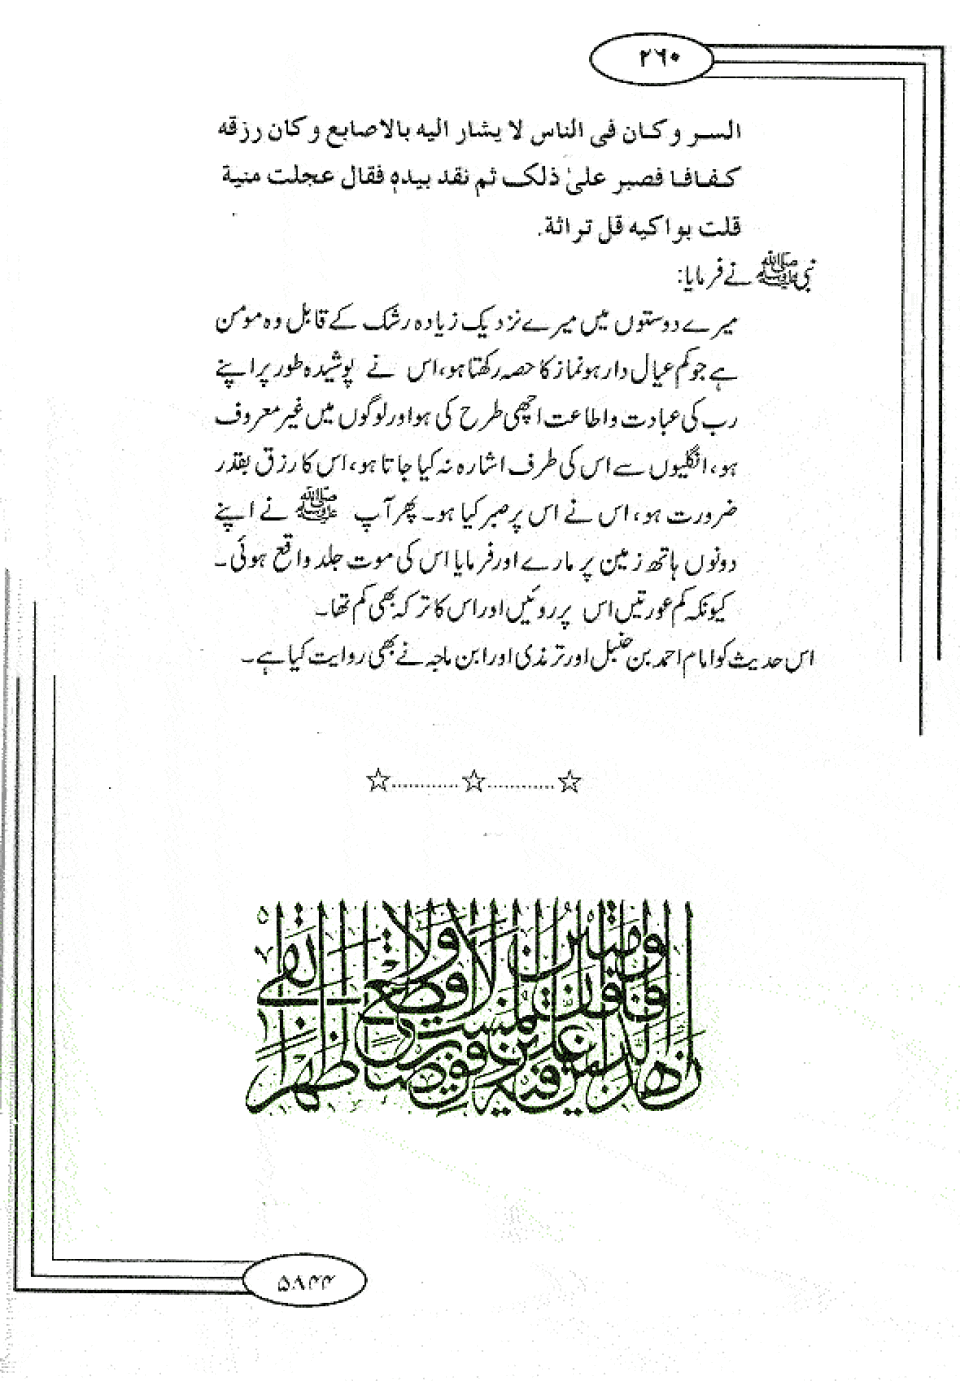 ۲۶۰
السر وکان فی الناس لا یشار الیه بالاصابع وکان رزقه
کفافا فصبر علیٰ ذلک ثم نقد بیدہٖ فقال عجلت منیة
قلت بواکیه قل تراثة.
نبی ﷺ نے فرمایا:
میرے دوستوں میں میرے نزدیک زیادہ رشک کے قابل وہ مومن
ہے جو کم عیال دار ہو نماز کا حصہ رکھتا ہو، اس نے پوشیدہ طور پر اپنے
رب کی عبادت و اطاعت اچھی طرح کی ہو اور لوگوں میں غیر معروف
ہو، انگلیوں سے اس کی طرف اشارہ نہ کیا جاتا ہو، اس کا رزق بقدر
ضرورت ہو، اس نے اس پر صبر کیا ہو۔ پھر آپ ﷺ نے اپنے
دونوں ہاتھ زمین پر مارے اور فرمایا اس کی موت جلد واقع ہوئی۔
کیونکہ کم عورتیں اس پر روئیں اور اس کا ترکہ بھی کم تھا۔
اس حدیث کو امام احمد بن حنبل اور ترمذی اور ابن ماجہ نے بھی روایت کیا ہے۔
☆............☆............☆
۵۸۴۴